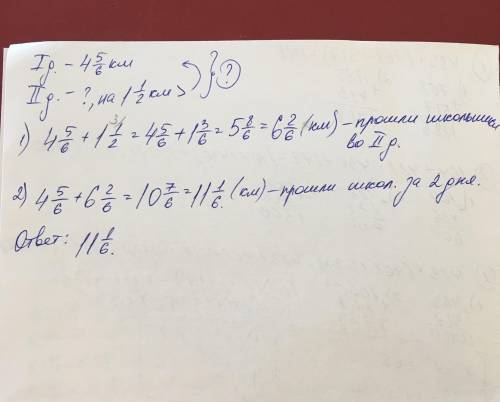 I д. – 4 5/6 км
II д. – ?, на 1 1/2 км > } ?
1) 4 5/6 + 1 1/2 ³⁄ = 4 5/6 + 1 3/6 = 5 8/6 = 6 2/6 (км) – прошли школьники
во II д.
2) 4 5/6 + 6 2/6 = 10 7/6 = 11 1/6 (км) – прошли школ. за 2 дня.
Ответ: 11 1/6.